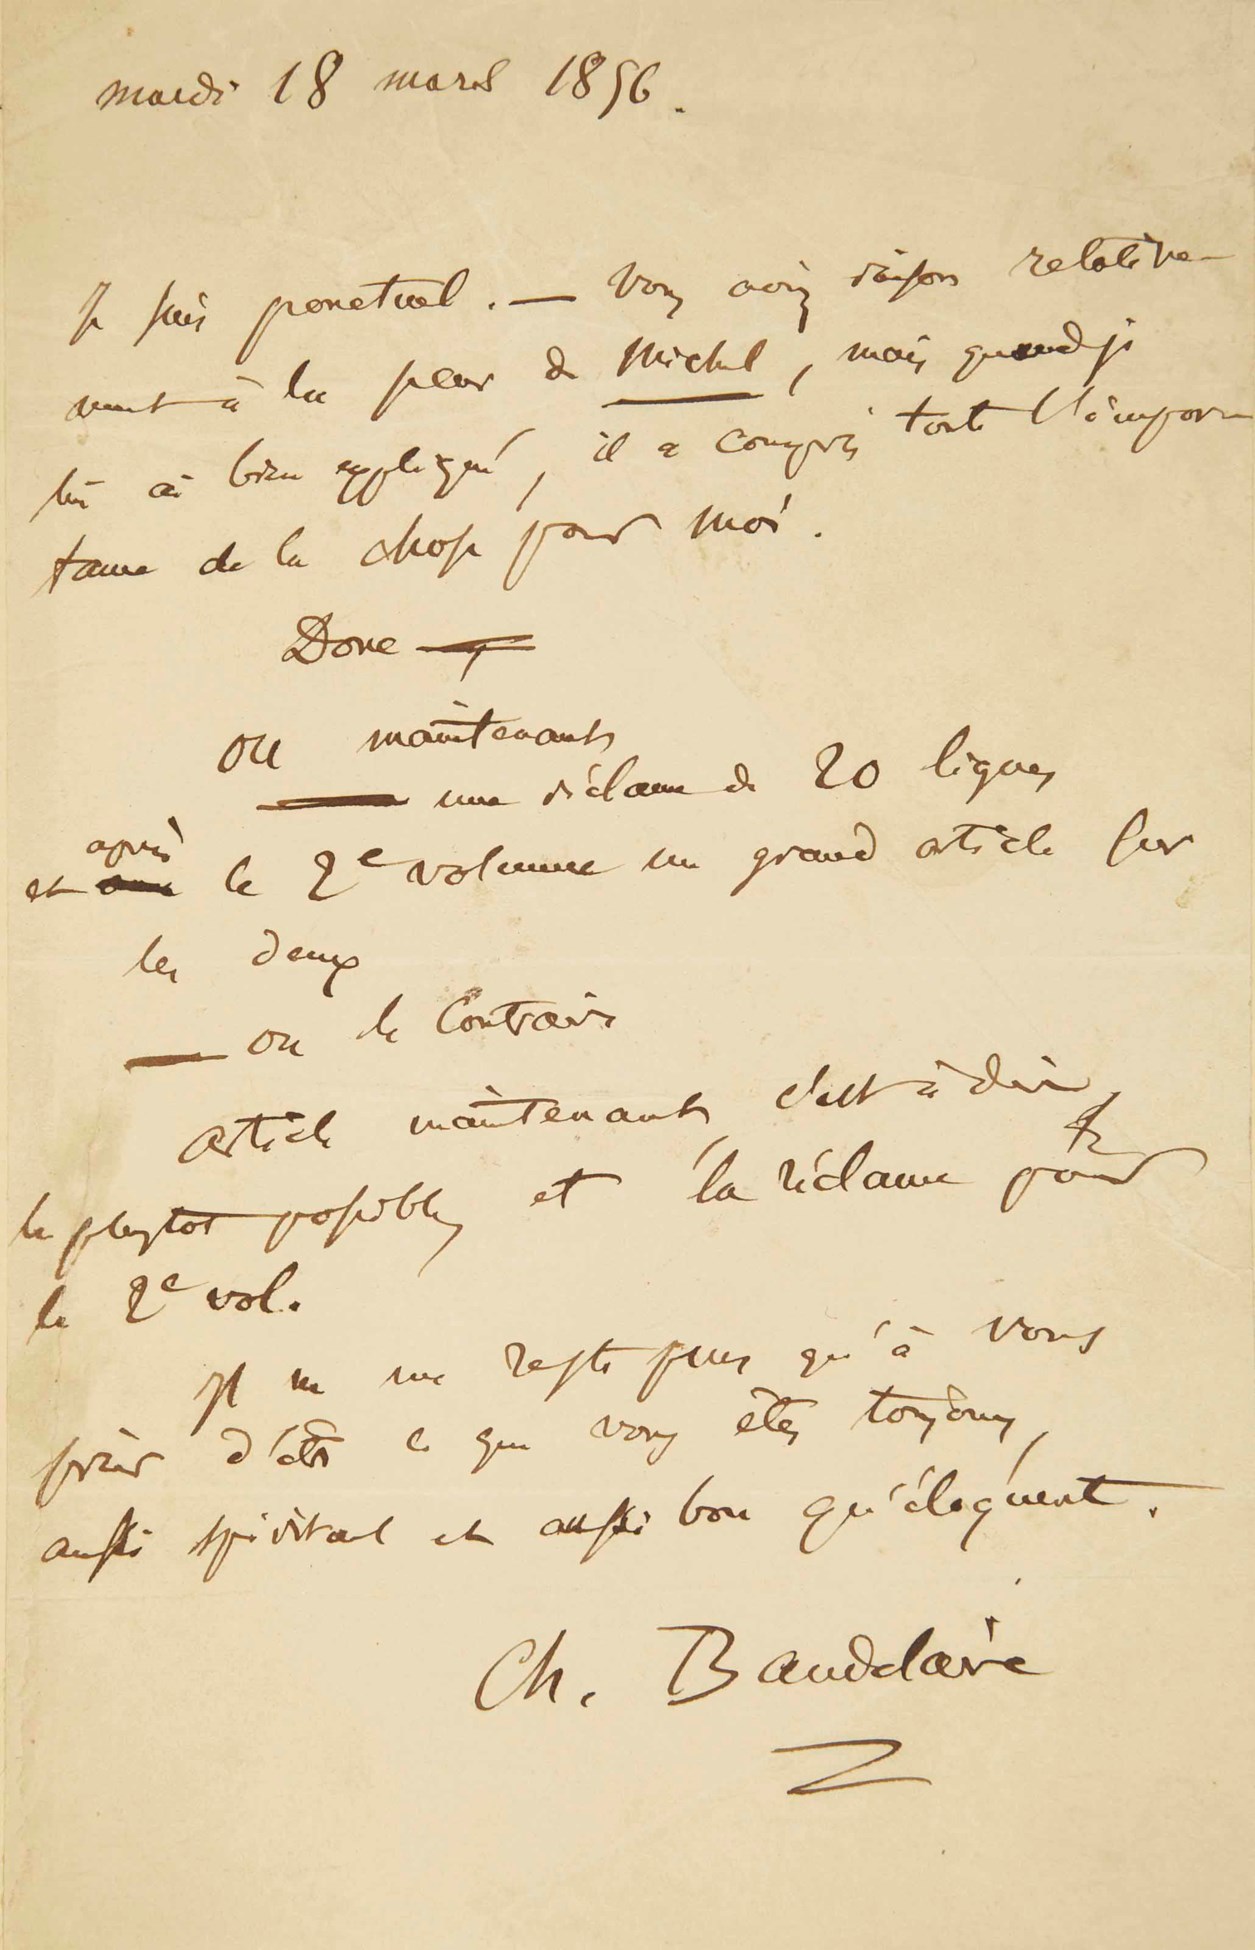 mardi 18 mars 1856.
Je suis ponctuel. — Vous aviez raison relative-
ment à la peur de Michel, mais quand je
lui ai bien expliqué, il a compris toute l'impor-
tance de la chose pour moi.
Donc —
ou maintenant
— une réclame de 20 lignes
après
et le 2e volume un grand article sur
les deux
— ou le contraire
article maintenant, c'est à dire,
le plustôt possible, et la réclame pour
le 2e vol.
Il ne me reste plus qu'à vous
prier d'être ce que vous êtes toujours,
aussi spirituel et aussi bon qu'éloquent.
Ch. Baudelaire